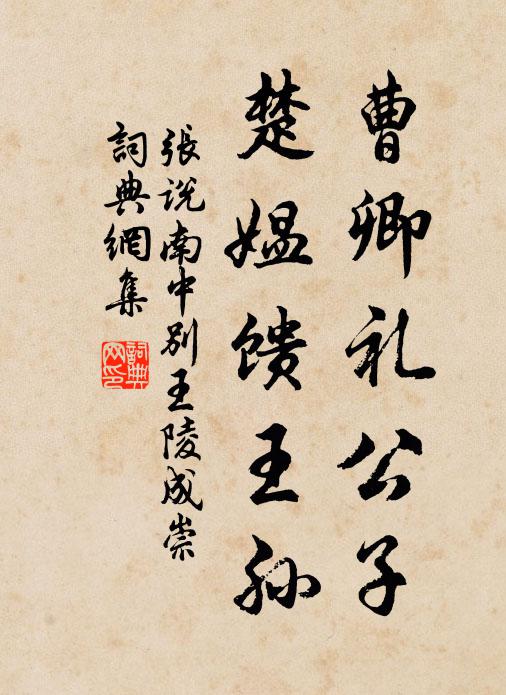 曹卿礼公子
楚媪馈王孙
張说南中别王陵成崇
詞典網集
詞典網印